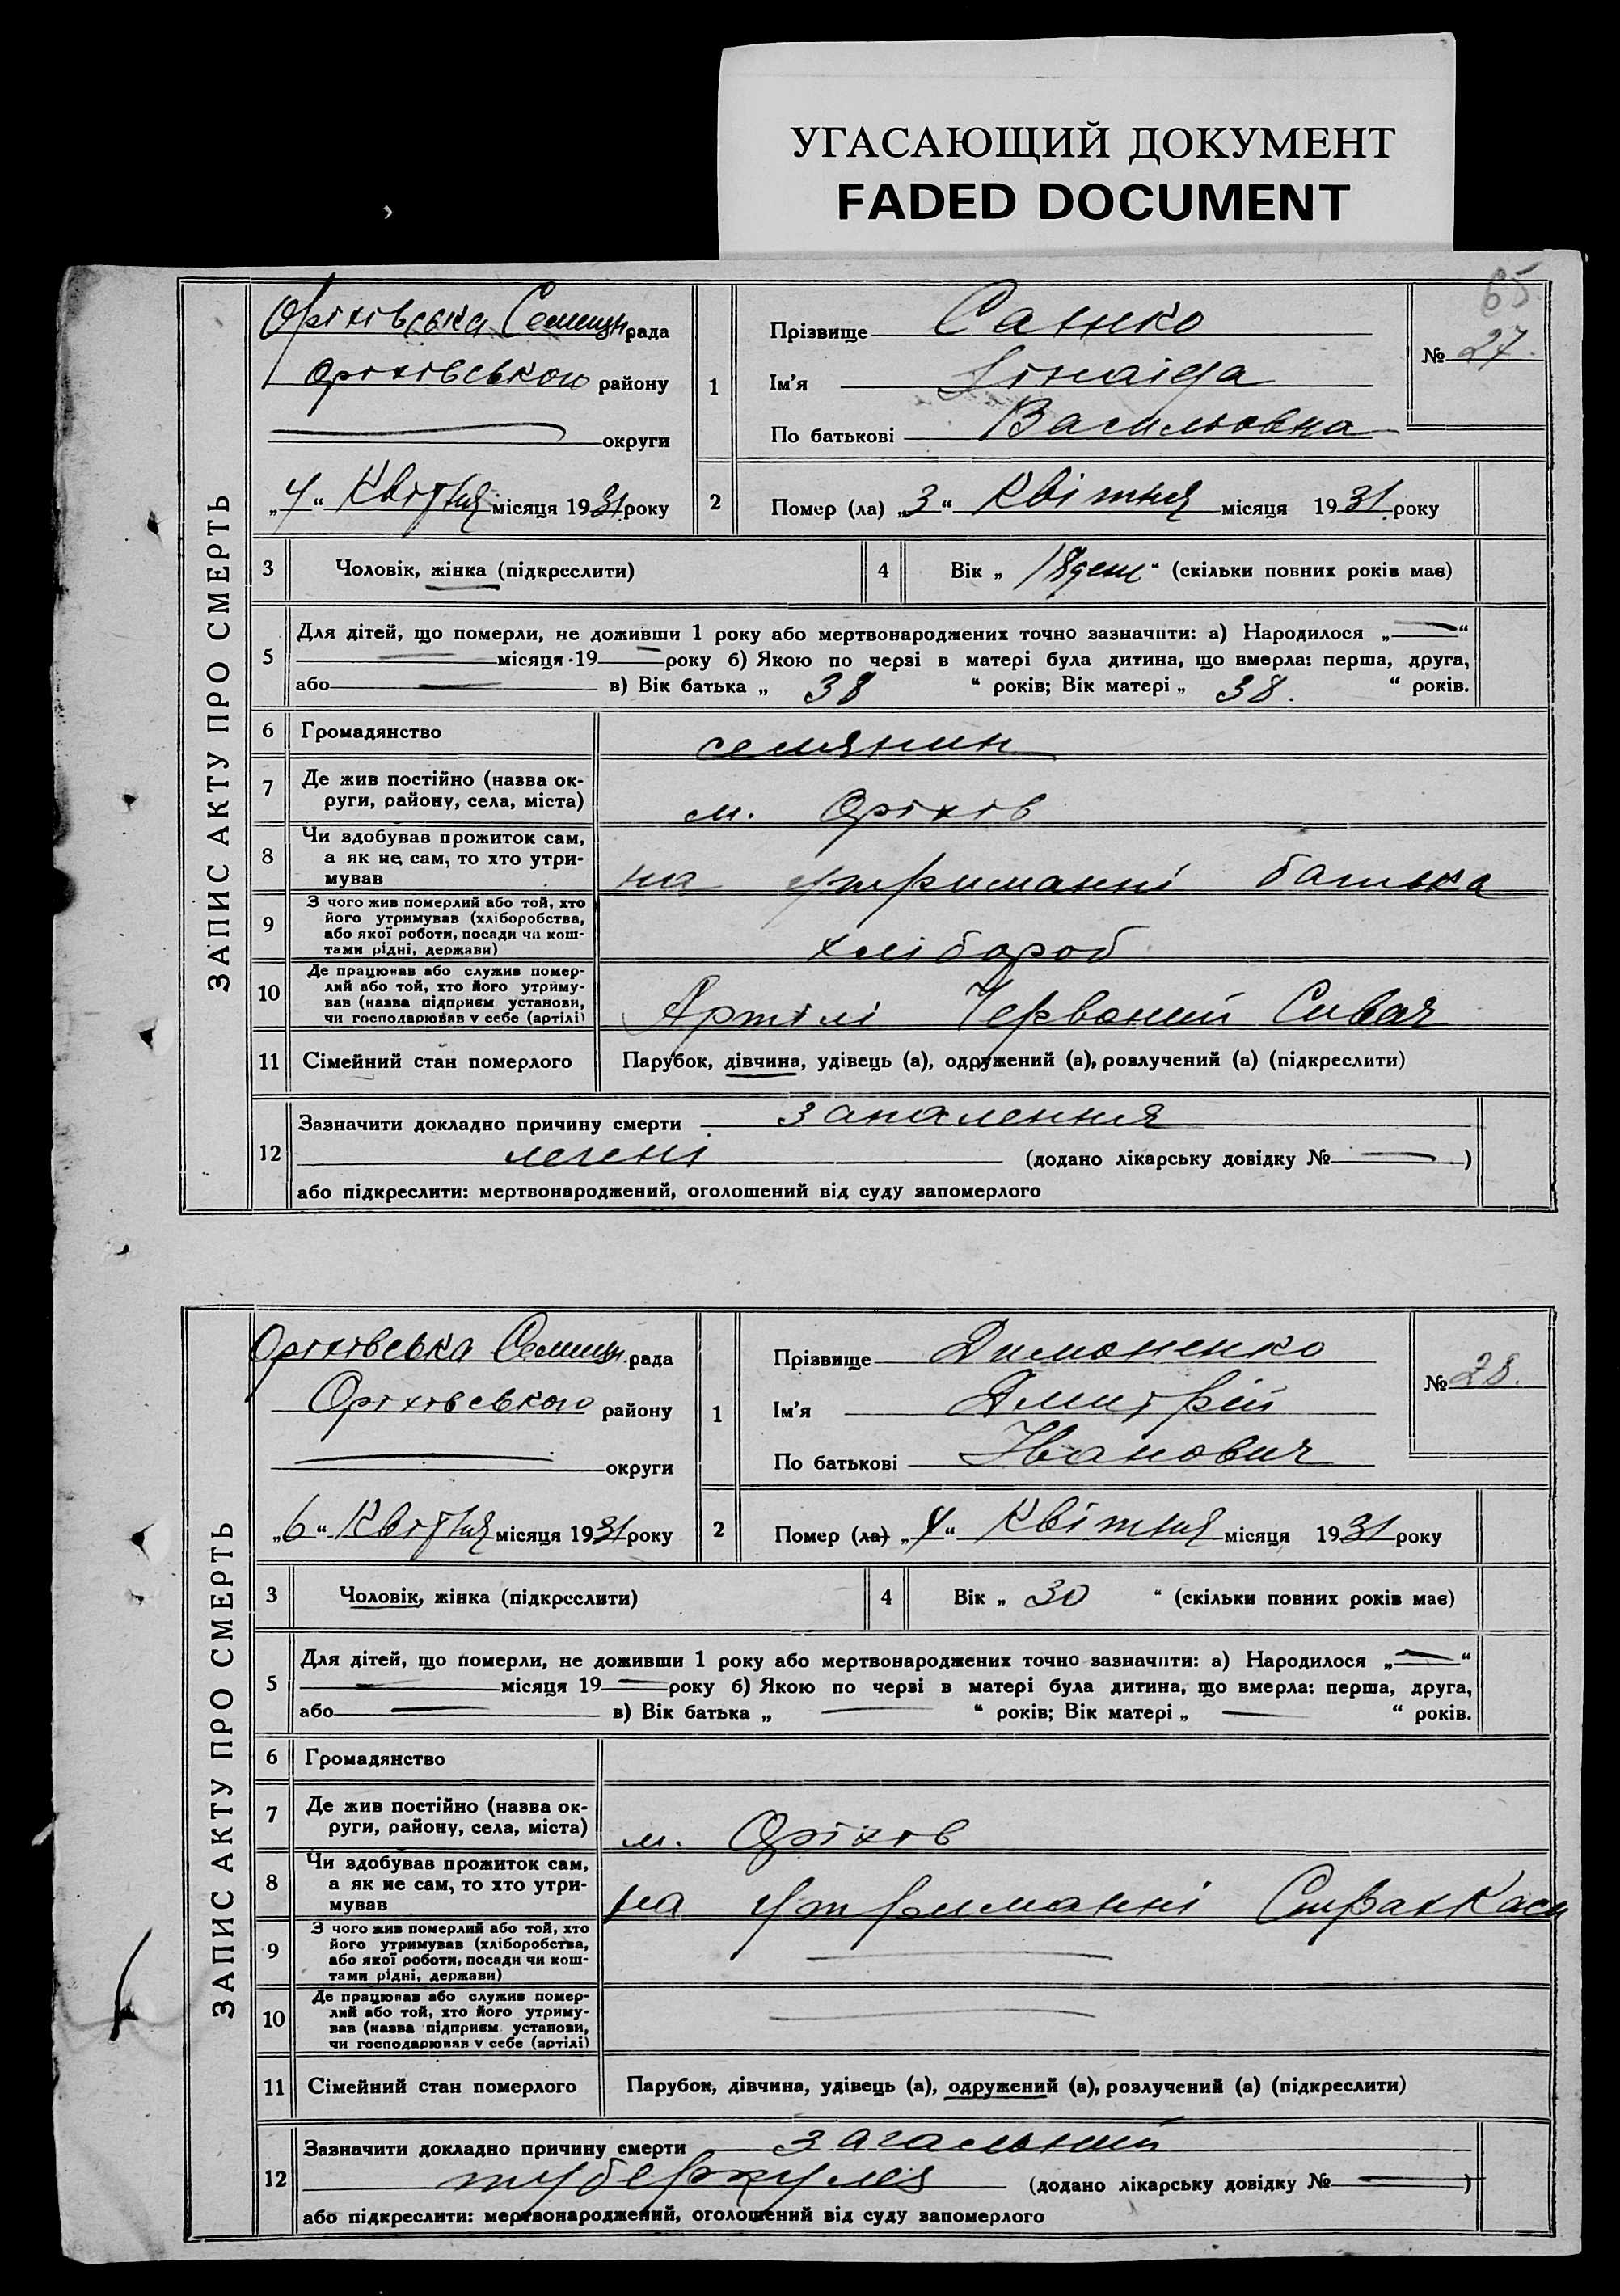 УГАСАЮЩИЙ ДОКУМЕНТ
FADED DOCUMENT
65
ЗАПИС АКТУ ПРО СМЕРТЬ
Оріхівська Селищн. рада
Оріхівського району
округи
„4“ Квітня місяця 1931 року
1
Прізвище Санько
Ім'я Зінаіда
По батькові Васильовна
№ 27.
2 Помер (ла) „3“ Квітня місяця 1931 року
3 Чоловік, жінка (підкреслити)
4 Вік „18 ден“ (скільки повних років має)
5 Для дітей, що померли, не доживши 1 року або мертвонароджених точно зазначити: а) Народилося „—“
місяця 19 — року б) Якою по черзі в матері була дитина, що вмерла: перша, друга,
або — в) Вік батька „ 38 “ років; Вік матері „ 38. “ років.
6 Громадянство селянин
7 Де жив постійно (назва ок-
руги, району, села, міста) м. Оріхів
8 Чи здобував прожиток сам,
а як не сам, то хто утри-
мував на утриманні батька
9 З чого жив померлий або той, хто
його утримував (хліборобства,
або якої роботи, посади чи кош-
тами рідні, держави) хлібороб
10 Де працював або служив помер-
лий або той, хто його утриму-
вав (назва підприєм. установи,
чи господарював у себе (артілі) Артілі Червоний Сиваш
11 Сімейний стан померлого Парубок, дівчина, удівець (а), одружений (а), розлучений (а) (підкреслити)
12 Зазначити докладно причину смерти запалення
легені (додано лікарську довідку № — )
або підкреслити: мертвонароджений, оголошений від суду запомерлого
ЗАПИС АКТУ ПРО СМЕРТЬ
Оріхівська Селищн. рада
Оріхівського району
округи
„6“ Квітня місяця 1931 року
1
Прізвище Димоненко
Ім'я Дмитрій
По батькові Іванович
№ 28.
2 Помер (ла) „4“ Квітня місяця 1931 року
3 Чоловік, жінка (підкреслити)
4 Вік „ 30 “ (скільки повних років має)
5 Для дітей, що померли, не доживши 1 року або мертвонароджених точно зазначити: а) Народилося „—“
місяця 19 — року б) Якою по черзі в матері була дитина, що вмерла: перша, друга,
або — в) Вік батька „ — “ років; Вік матері „ — “ років.
6 Громадянство
7 Де жив постійно (назва ок-
руги, району, села, міста) м. Оріхів
8 Чи здобував прожиток сам,
а як не сам, то хто утри-
мував на утриманні СтрахКаси
9 З чого жив померлий або той, хто
його утримував (хліборобства,
або якої роботи, посади чи кош-
тами рідні, держави) —
10 Де працював або служив помер-
лий або той, хто його утриму-
вав (назва підприєм. установи,
чи господарював у себе (артілі) —
11 Сімейний стан померлого Парубок, дівчина, удівець (а), одружений (а), розлучений (а) (підкреслити)
12 Зазначити докладно причину смерти загальний
туберкульоз (додано лікарську довідку № — )
або підкреслити: мертвонароджений, оголошений від суду запомерлого